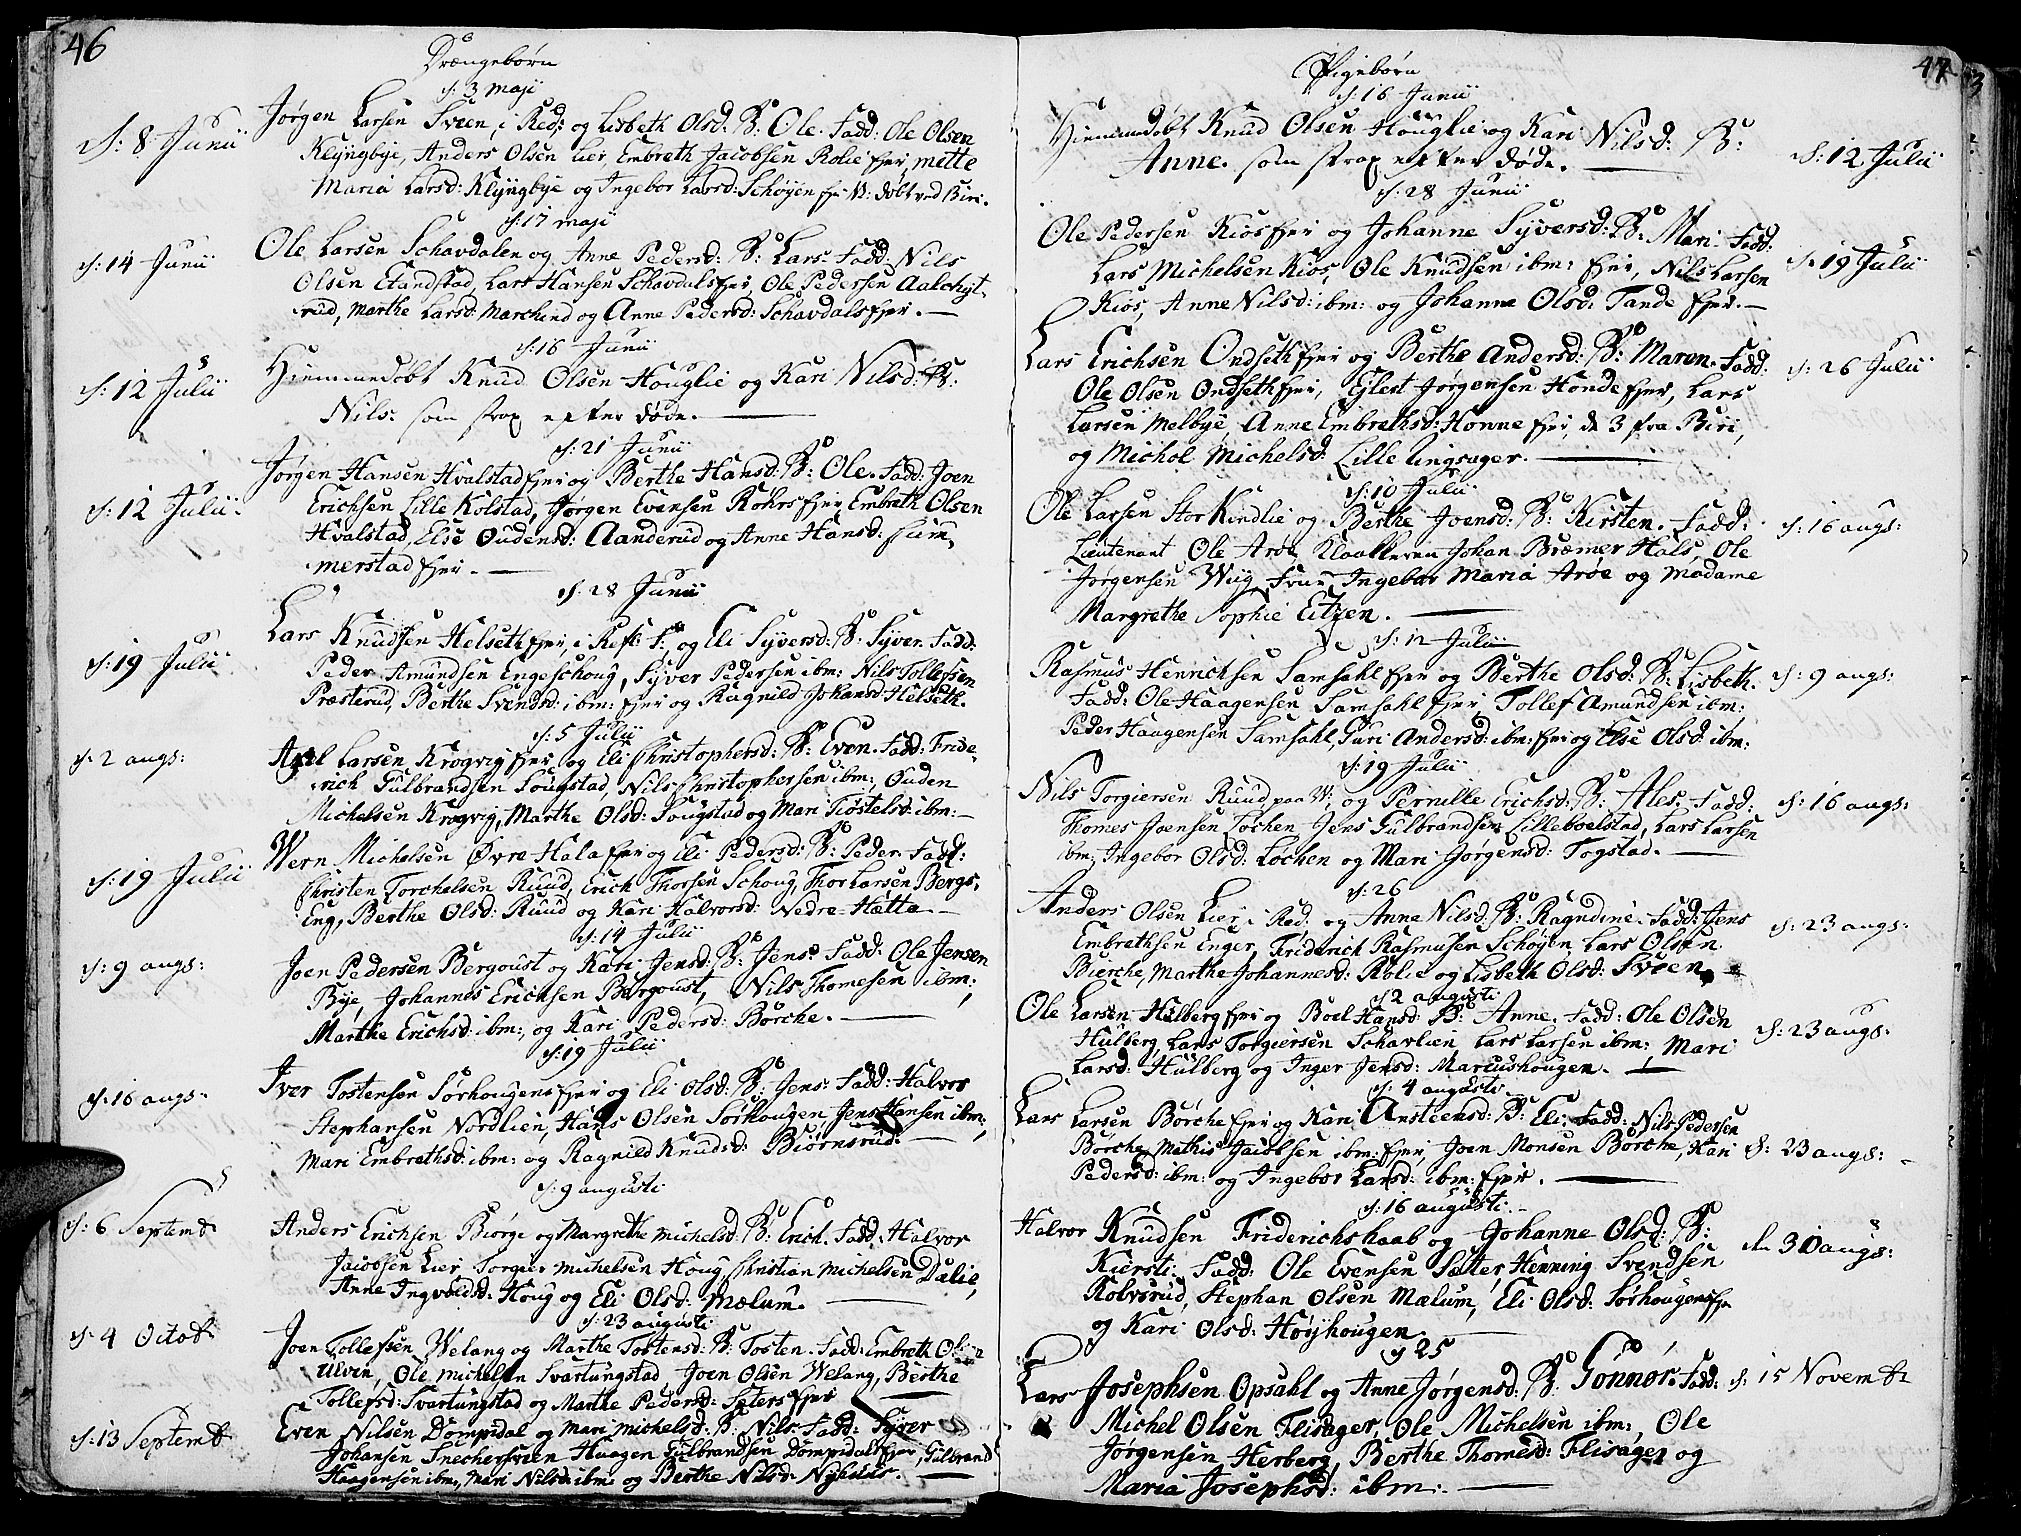 46
Drængebørn
d: 3 maji
Jørgen Larsen Sveen, i Red: og Lisbeth Olsd: B: Ole. Fadd: Ole Olsen
d: 8 Junii
Klyngbye, Anders Olsen Lier, Embreth Jacobsen Rolie Eyer, mette
Maria Larsd: Klyngbye og Ingebor Larsd: Schøyen Eyer N: døbt ved Biri.
d: 17 maji
Ole Larsen Schavdalen og Anne Pedersd: B: Lars Fadd: Nils
d: 14 Junii
Olsen Standstad, Lars Hansen Schavdalseyer, Ole Pedersen Aalchyt,
rud, Marthe Larsd: Marchend og Anne Pedersd: Schavdalseyer.
d: 16 Junii
Hjemmedøbt Knud Olsen Houglie og Kari Nilsd: B:
d: 12 Julii
Nils: som strax efter døde.
d: 21 Junii
Jørgen Hansen Hvalstad Eyer og Berthe Hansd: B: Ole. Fadd: Joen
d: 12 Julii
Erichsen Lille Kolstad, Jørgen Evensen Rohrs Eyer, Embreth Olsen
Hvalstad, Else Oudensd: Aanderud og Anne Hansd: Sum,
merstad Eyer.
d: 28 Junii
Lars Knudsen Helseth Eyer, i Reft: F: og Eli Syversd: B: Syver. Fadd:
d: 19 Julii
Peder Amundsen Engeschoug, Syver Pedersen ibm: Nils Tollefsen
Præsterud, Berthe Svendsd: ibm: Eyer og Ragnild Johansd: Helseth.
d: 5 Julii
d: 2 augs:
Axel Larsen Krogvig Eyer og Eli Christophersd: B: Even. Fadd: Fride,
rich Gulbrandsen Sougstad, Nils Christophersen ibm: Ouden
Michelsen Krogvig, Marthe Olsd: Sougstad og Mari Tiøstelsd: ibm:
Wern Michelsen Øvre Hala Eyer og Eli Pedersd: B: Peder. Fadd:
d: 19 Julii
Christen Torchelsen Ruud, Erich Thorsen Schoug, Thor Larsen Bergs,
Eng, Berthe Olsd: Ruud og Kari Halvorsd: Nedre Hatta
d: 14 Julii
Joen Pedersen Bergoust og Kari Jensd: B: Jens. Fadd: Ole Jensen
d: 9 augs:
Bye, Johannes Erichsen Bergoust, Nils Thomesen ibm:
Marthe Erichsd: ibm: og Kari Pedersd: Børche.
d: 19 Julii
Iver Tostensen Sørhougens Eyer og Eli Olsd: B: Jens: Fadd: Halvor
d: 16 augs:
Stephansen Nordlien, Hans Olsen Sørhougen, Jens Hansen ibm:
Mari Embrethsd: ibm: og Ragnild Knudsd: Biørnsrud.
d: 9 augusti
d: 6 Septembr
Anders Erichsen Biørge og Margrethe Michelsd: B: Erich. Fadd: Halvor
Jacobsen Lier, Torgier Michelsen Houg, Christian Michelsen Dalie,
Anne Ingvoldsd: Houg og Eli Olsd: Mælum.
d: 23 augusti
d: 4 Octobr
Joen Tollefsen Welang og Marthe Tostensd: B: Tosten. Fadd: Embreth Olsen
Ulven, Ole Michelsen Svartungstad, Joen Olsen Welang, Berthe
Tollefsd: Svartungstad og Marthe Pedersd: Sæters Eyer
d: 13 Septembr
Even Nilsen Dompidal og Mari Michelsd: B: Nils. Fadd: Syver
Johansen Snechersveen, Haagen Gulbrandsen Dompidals Eyer, Gulbrand
Haagensen ibm: Mari Nilsd: ibm: og Berthe Nilsd: Nyhuus.
47
Pigebørn
d: 16 Junii
Hjemmedøbt Knud Olsen Houglie og Kari Nilsd: B:
d: 12 Julii
Anne. som strax efter døde.
d: 28 Junii
Ole Pedersen Kioseyer og Johanne Syversd: B: Mari Fadd:
d: 19 Julii
Lars Michelsen Kios, Ole Knudsen ibm: Eyer, Nils Larsen
Kios, Anne Nilsd: ibm: og Johanne Olsd: Tande Eyer.
Lars Erichsen Ondseth Eyer og Berthe Andersd: B: Maren. Fadd:
d: 26 Julii
Ole Olsen Ondseth Eyer, Eylert Jørgensen Honde Eyer, Lars
Larsen Melbye, Anne Embrethsd: Honne Eyer, de 3 fra Biri,
og Michol Michelsd: Lille Ungsager.
d: 10 Julii
Ole Larsen Stor Kindlie og Berthe Joensd: B: Kirsten. Fadd:
d: 16 augs:
Lieutenant Ole Arøe, Klokkeren Johan Bræmer Hals, Ole
Jørgensen Wiig, Frue Ingebor Maria Arøe og Madame
Margrethe Sophie Eitzen.
d: 12 Julii
Rasmus Henrichsen Samsahl Eyer og Berthe Olsd: B: Lisbeth.
d: 9 augs:
Fadd: Ole Haagensen Samsahl Eyer, Tollef Amundsen ibm:
Peder Haagensen Samsahl, Guri Andersd: ibm: Eyer og Else Olsd: ibm:
d: 19 Julii
Nils Torgiersen Ruud paa W: og Pernille Erichsd: B: Ales. Fadd:
d: 16 augs:
Thomes Joensen Løchen, Jens Gulbrandsen Lilleboelstad, Lars Larsen
ibm: Ingebor Olsd: Løchen og Mari Jørgensd: Togstad.
d: 26
Anders Olsen Lier, i Red: og Anne Nilsd: B: Ragndine. Fadd: Jens
d: 23 augs:
Embrethsen Enger, Friderich Rasmusen Schøyen, Lars Olsen
Bierche, Marthe Johannesd: Rølie og Lisbeth Olsd: Sveen.
d: 2 augusti
Ole Larsen Hulberg Eyer og Boel Hansd: B: Anne. Fadd: Ole Olsen
d: 23 augs:
Hulberg, Lars Torgiersen Schavlien, Lars Larsen ibm: Mari
Larsd: Hulberg og Inger Jensd: Marcushougen.
d: 4 augusti
Lars Larsen Børche Eyer og Kari Ansteensd: B: Eli. Fadd: Nils Pedersen
Børche, Mathis Jacobsen ibm: Eyer, Joen Monsen Børche, Kari
d: 23 augs:
Pedersd: ibm: og Ingebor Larsd: ibm: Eyer.
d: 16 augusti
Halvor Knudsen Friderichshaab og Johanne Olsd: B:
den 30 augs:
Kiersti. Fadd: Ole Evensen Sætter, Henning Svendsen
Kolvsrud, Stephan Olsen Mælum, Eli Olsd: Sørhougens Eyer
og Kari Olsd: Høyhougen.
d 25
Lars Josephsen Opsahl og Anne Jørgensd: B: Gønnør. Fadd:
d: 15 Novembr
Michel Olsen Flisager, Ole Michelsen ibm: Ole
Jørgensen Herberg, Berthe Thomesd: Flisager og
Maria Josephsd: ibm: